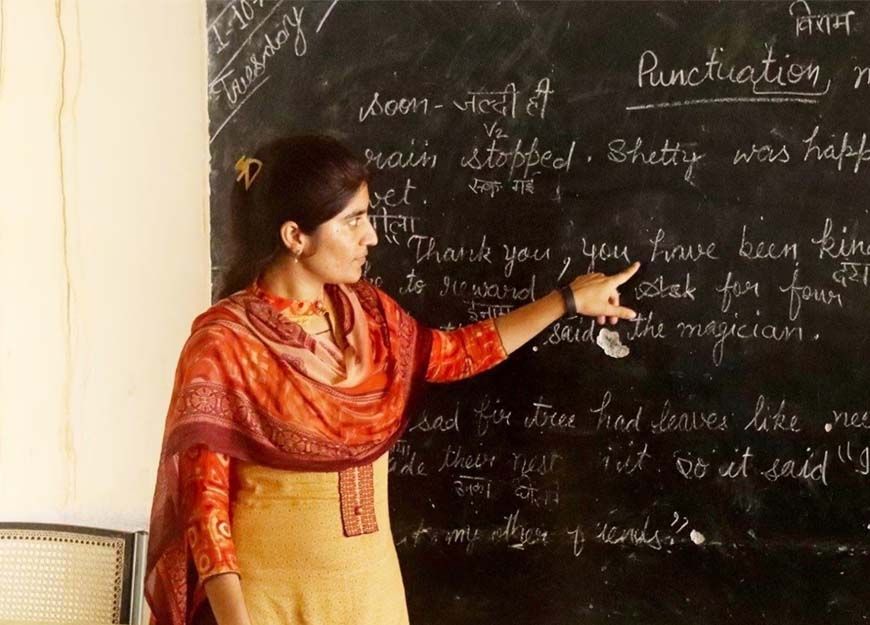 Tuesday
विराम
Punctuation
soon - जल्दी ही
V2
rain stopped. Shetty was happ
रुक गई
wet.
गीला
"Thank you, you have been kin
to reward ask for four
इनाम
said the magician.
sad fir tree had leaves like nee
their nest it. So it said "I
उनका
to my other friends."